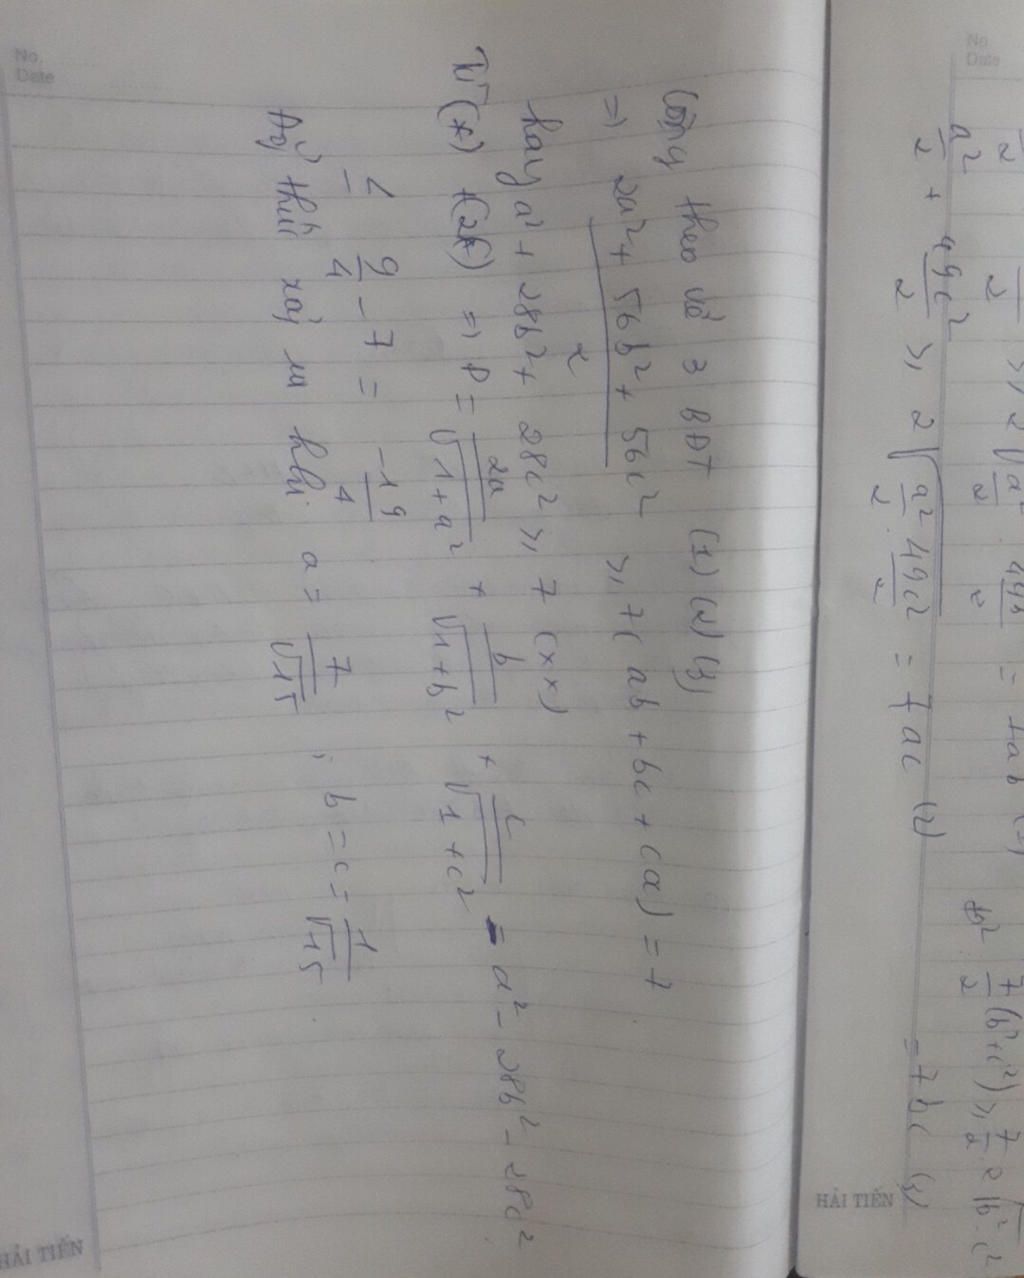 No.
Date
a²/2 + 49c²/2 ≥ 2√(a²/2 · 49c²/2) = 7ac (2)
7/2 (b²+c²) ≥ 7/2 · 2√b²c²
= 7bc (3)
HẢI TIẾN
Cộng theo vế 3 BĐT (1) (2) (3)
=> (2a² + 56b² + 56c²)/2 ≥ 7(ab + bc + ca) = 7
hay a² + 28b² + 28c² ≥ 7 (**)
Từ (*) (2*) => P = 2a/√(1+a²) + b/√(1+b²) + c/√(1+c²) - a² - 28b² - 28c²
≤ 9/4 - 7 = -19/4
thức xảy ra khi a = 7/√15 ; b = c = 1/√15
No.
Date
HẢI TIẾN